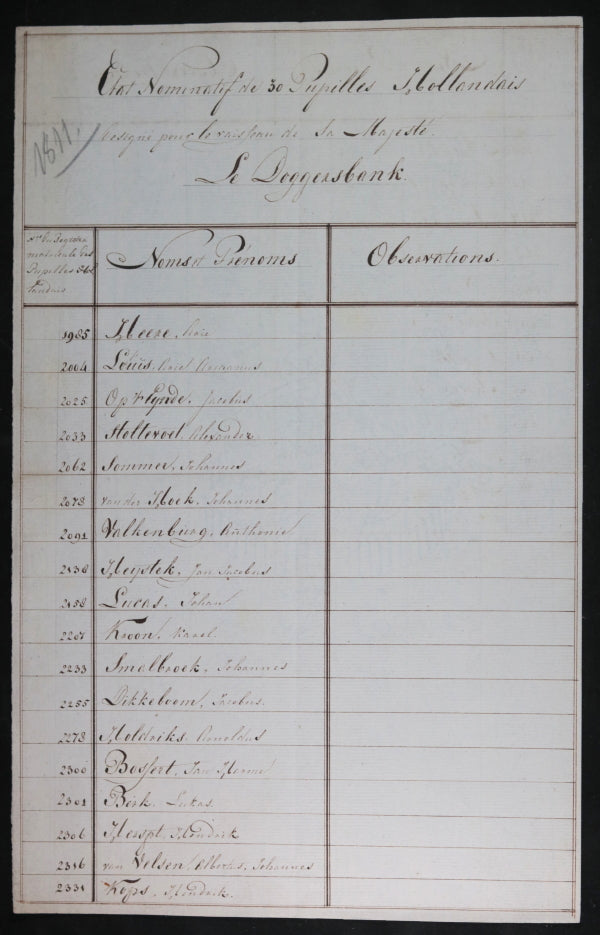 Etat Nominatif de 30 Pupilles Hollandais
1811.
désigné pour le vaisseau de Sa Majesté.
Le Doggersbank.
matricule des
Pupilles Hol
landais
Noms et Prénoms
Observations.
1985 Heere,
2004 Louïs,
2025 Op 't Eynde. Jacobus
2033 Holtevoet, Alexander
2062 Sommer, Johannes
2078 van der Hoek, Johannes
2091 Valkenburg, Anthonie
2138 Heystek, Jan Jacobus
2158 Lucas. Johan
2207 Kroon, Karel.
2233 Smalbroek, Johannes
2255 Dikkeboom, Jacobus.
2278 Holdriks, Arnoldus
2300 Bosfort, Jan Harme
2301 Berk, Lukas.
2306 Herspt, Hendrik
2316 van Velsen, Albertus, Johannes
2331 Kops, Hendrik.